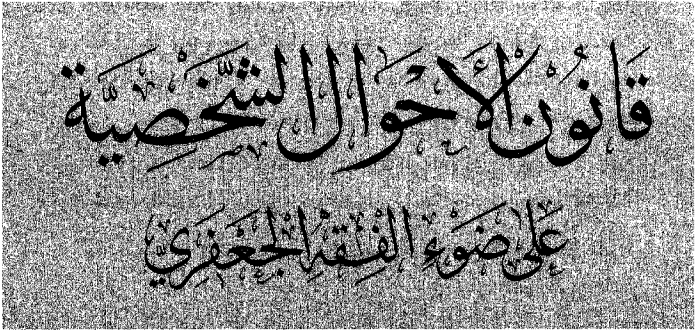 قَانُونُ الْأَحْوَالِ الشَّخْصِيَّةِ
عَلَى ضَوْءِ الْفِقْهِ الْجَعْفَرِيِّ